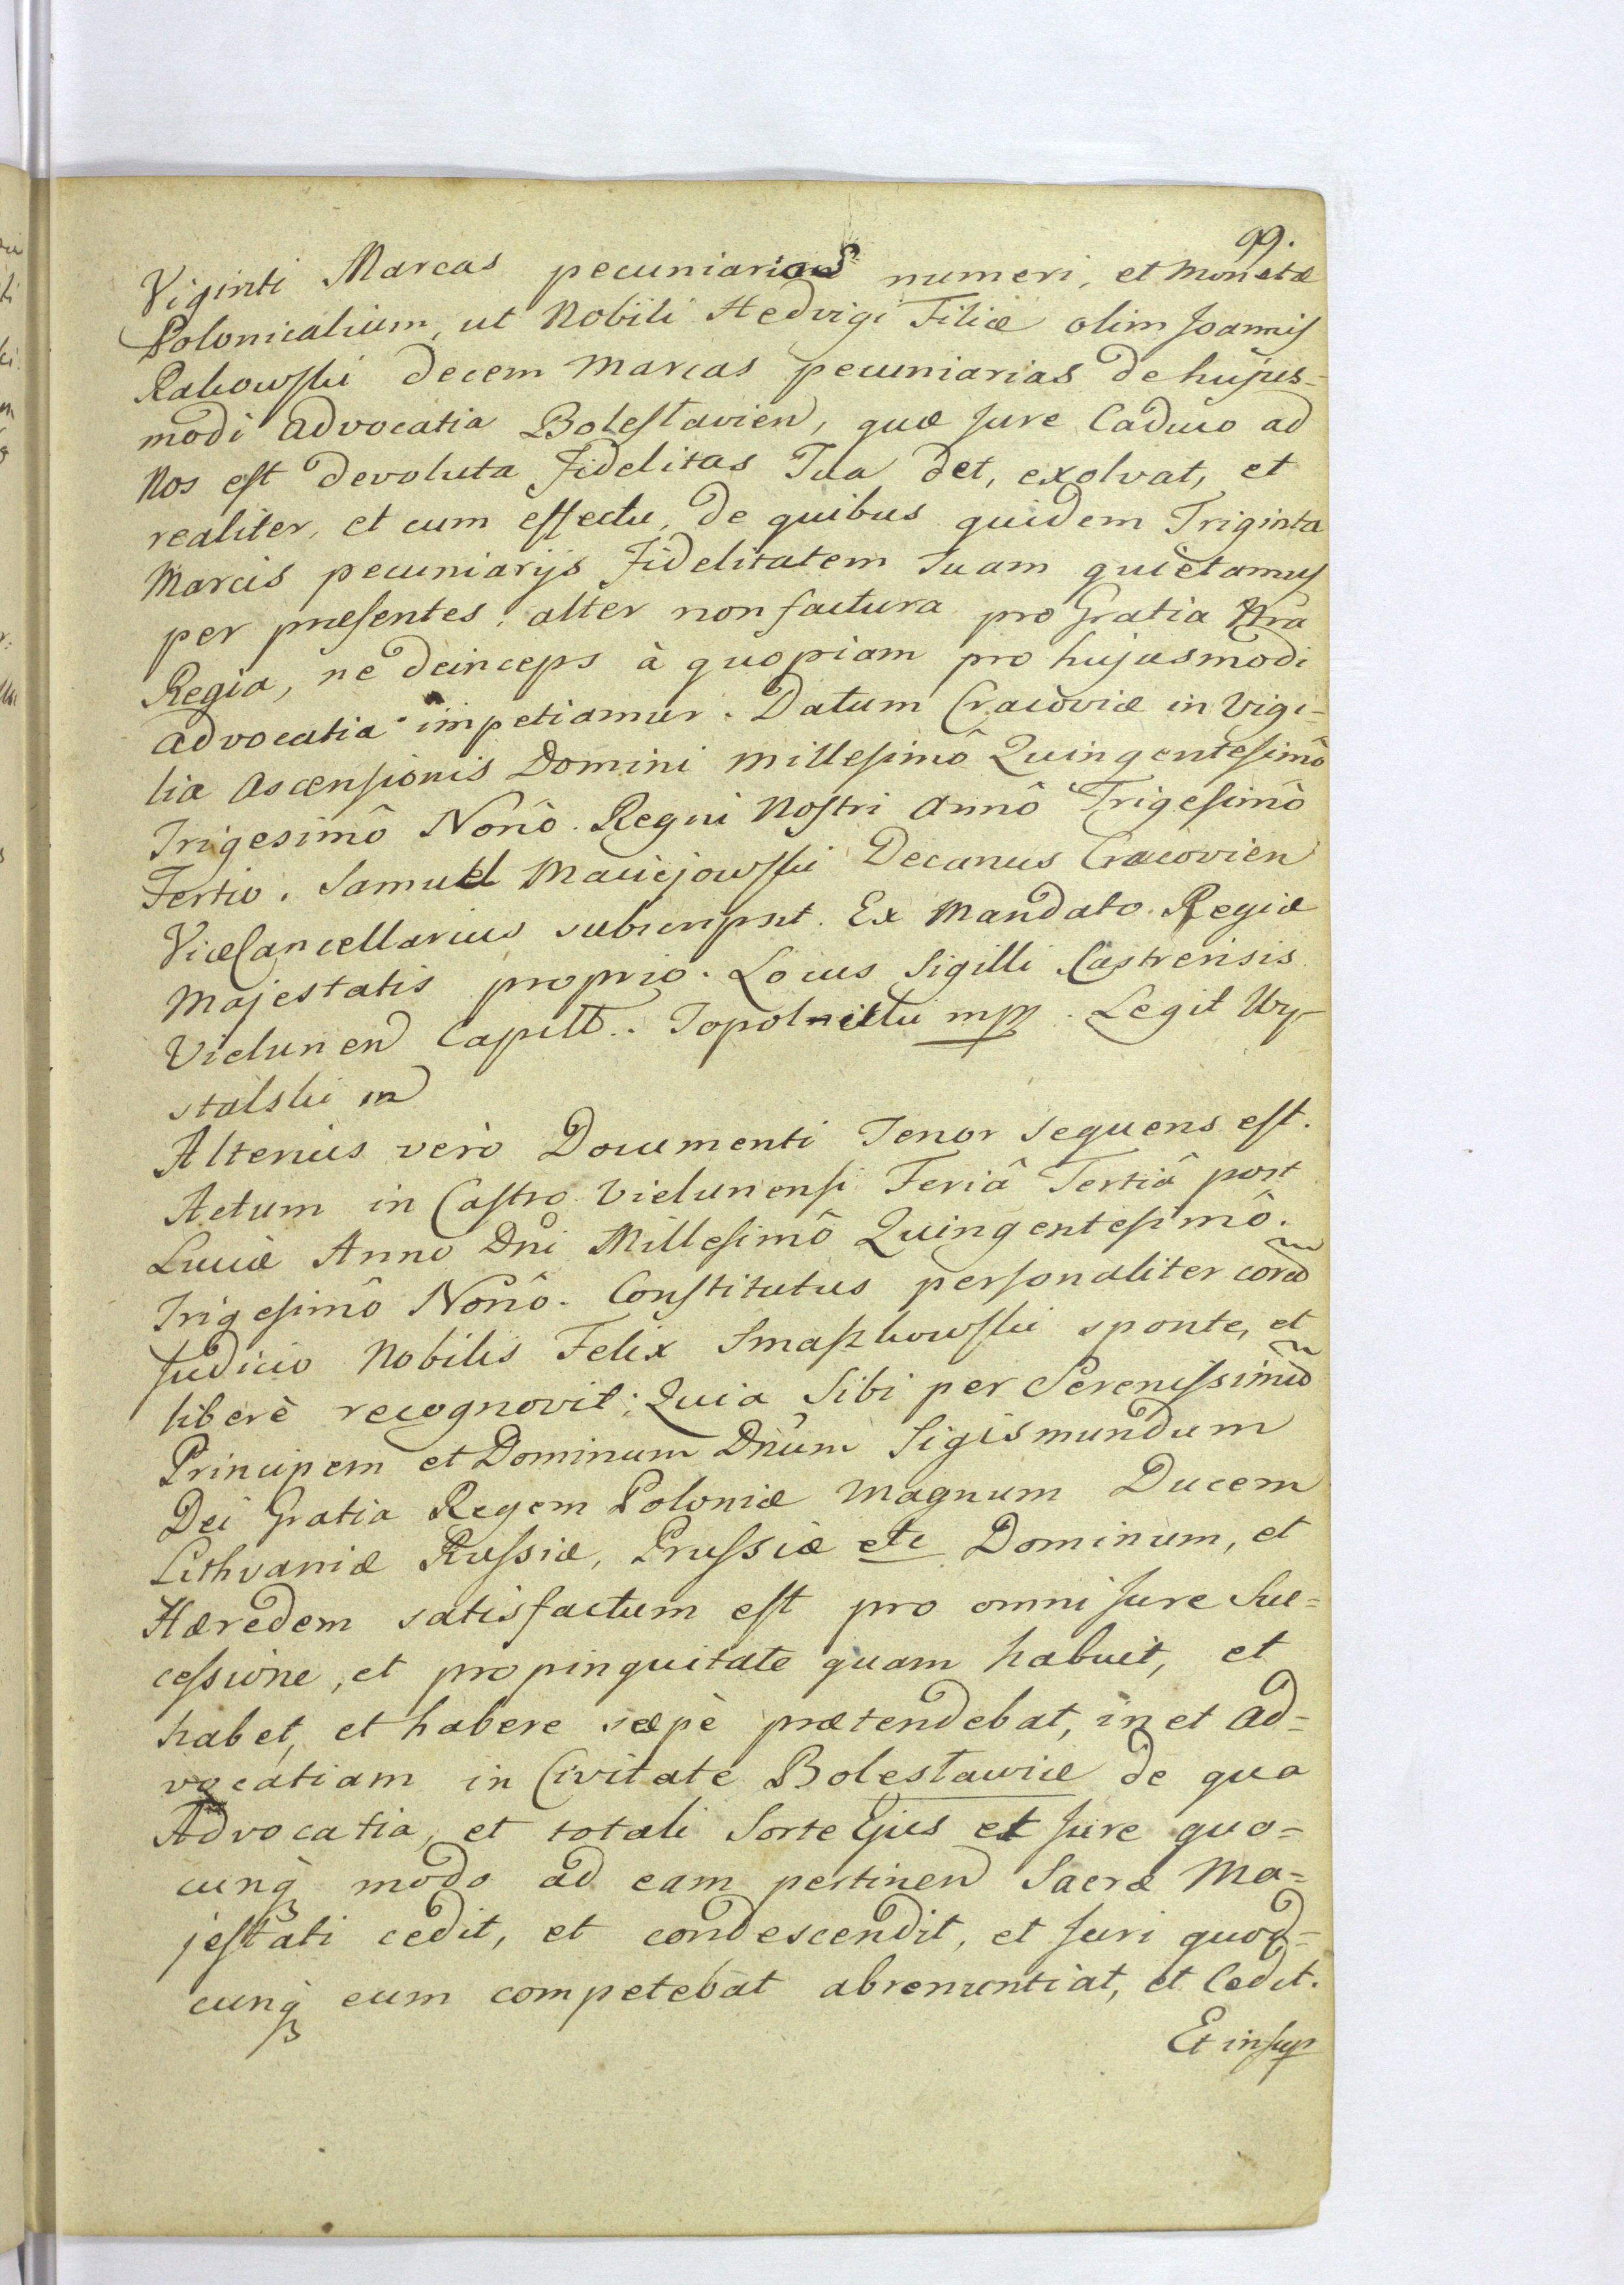 99.
Viginti Marcas pecuniarias numeri, et monetæ
Polonicalium, ut Nobili Hedvigi Filiæ olim Joannis
Rakowski decem marcas pecuniarias de hujus=
modi advocatia Bolestavien, quæ Jure Caduco ad
Nos est devoluta Fidelitas Tua det, exolvat, et
realiter, et cum effectu, de quibus quidem Triginta
Marcis pecuniarijs Fidelitatem Tuam quietamus
per præsentes. alter non factura pro Gratia Nra
Regia, ne deinceps à quopiam pro hujusmodi
advocatia impetiamur. Datum Cracoviæ in Vigi=
lia Ascensionis Domini millesimô Quingentesimô
Trigesimô Nonô. Regni Nostri annô Trigesimô
Tertio. Samuel Maciejowski Decanus Cracovien
ViceCancellarius subscripsit. Ex Mandato Regiæ
Majestatis proprio. Locus Sigilli Castrensis
Vielunen Capitt. Topolnicki mpp. Legit Wy-
stalski m
Alterius verò Documenti Tenor sequens est.
Actum in Castro Vielunensi Feriâ Tertiâ post
Luciæ Anno Dni Millesimô Quingentesimô.
Trigesimô Nonô. Constitutus personaliter cord
Judicio Nobilis Felix Smaszkowski sponte, et
liberè recognovit; Quia Sibi per Serenissimũ
Principem et Dominum Dnum Sigismundum
Dei Gratia Regem Poloniæ Magnum Ducem
Lithvaniæ Russiæ, Prussiæ etc Dominum, et
Hæredem satisfactum est pro omni Jure Suc=
cessione, et propinquitate quam habuit, et
habet, et habere sæpè prætendebat, in et ad=
vocatiam in Civitate Bolestawiæ de qua
Advocatia, et totali Sorte Ejus et Jure quo=
cunq̃ modo ad eam pertinen Sacræ Ma=
jestati cedit, et condescendit, et Juri quod=
cunq̃ eum competebat abrenuntiat, et Cedit.
Et insup